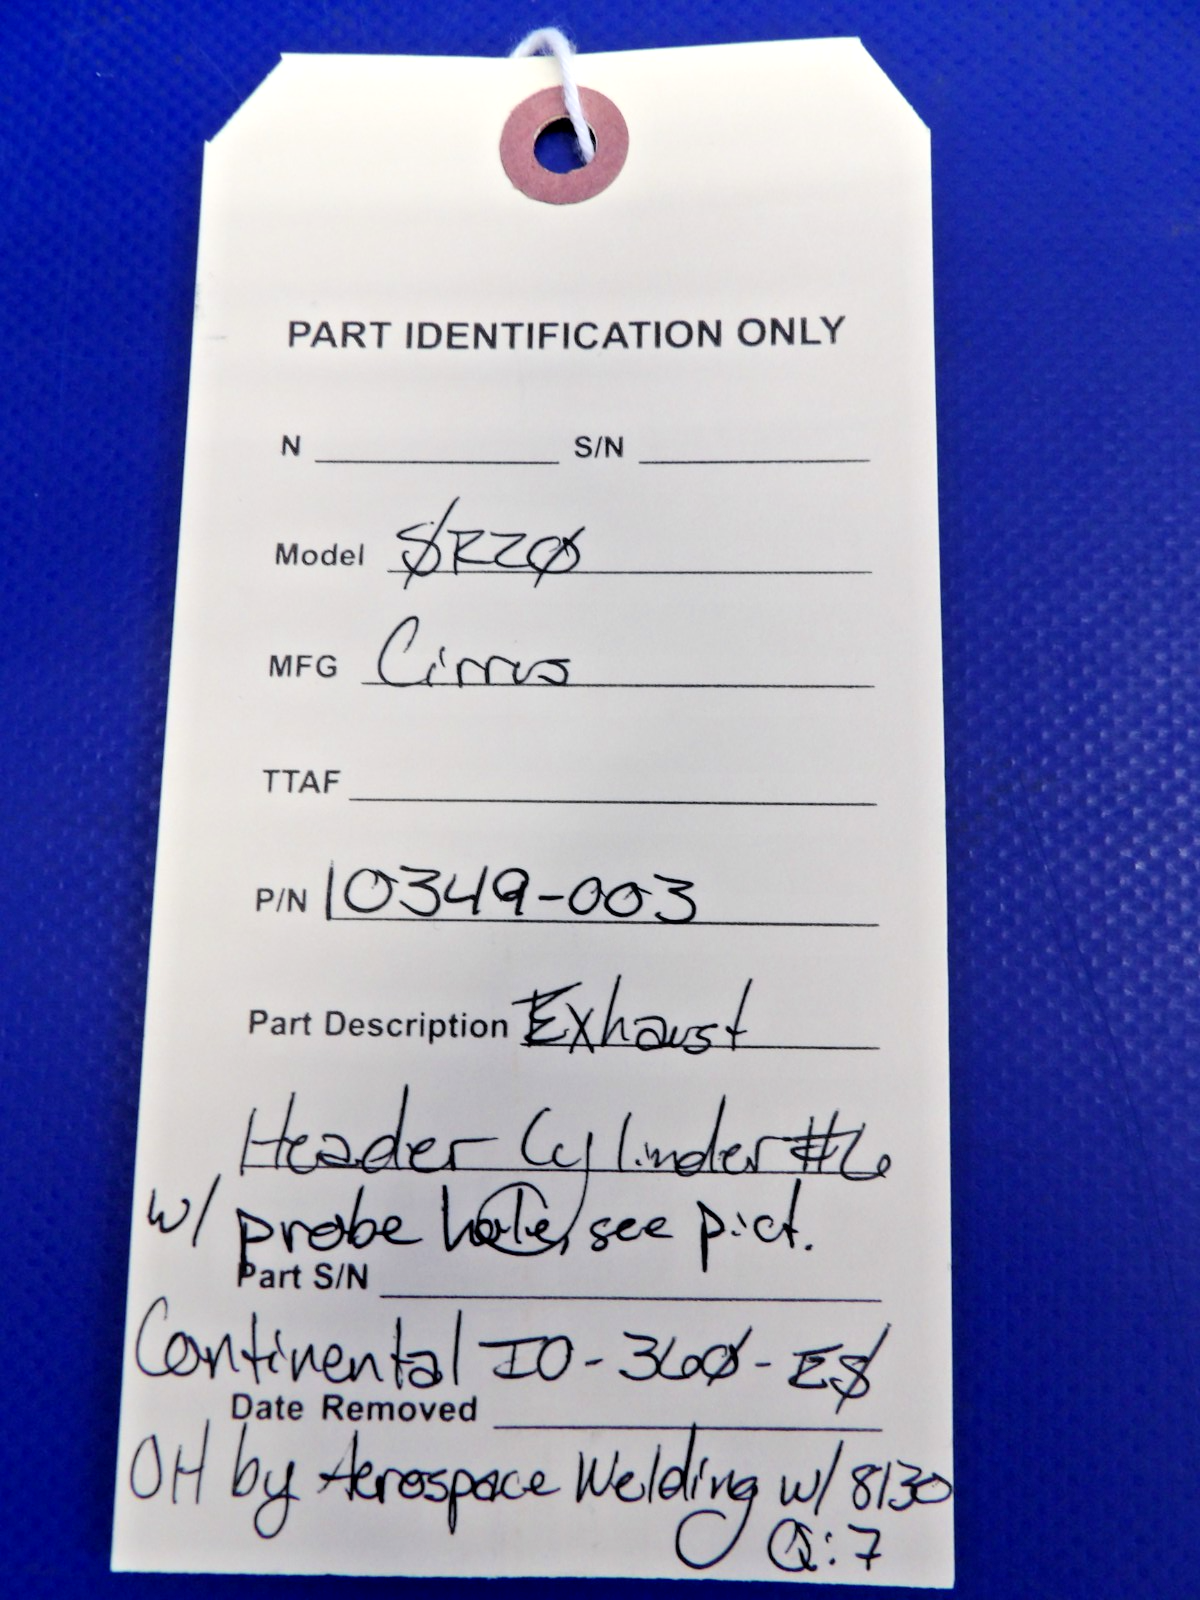 PART IDENTIFICATION ONLY
N S/N
Model SR20
MFG Cirrus
TTAF
P/N 10349-003
Part Description Exhaust
Header Cylinder #6
w/ probe hole, see pict.
Part S/N
Continental IO-360-ES
Date Removed
OH by Aerospace Welding w/ 8130
Q:7